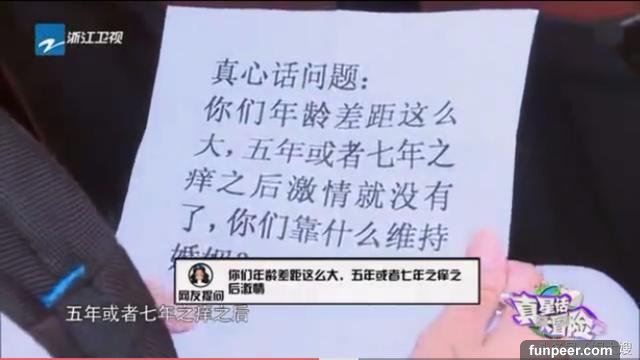 浙江卫视
真心话问题：
你们年龄差距这么
大，五年或者七年之
痒之后激情就没有
了，你们靠什么维持
你们年龄差距这么大，五年或者七年之痒之
后激情
网友提问
五年或者七年之痒之后
真星话
大冒险
funpeer.com